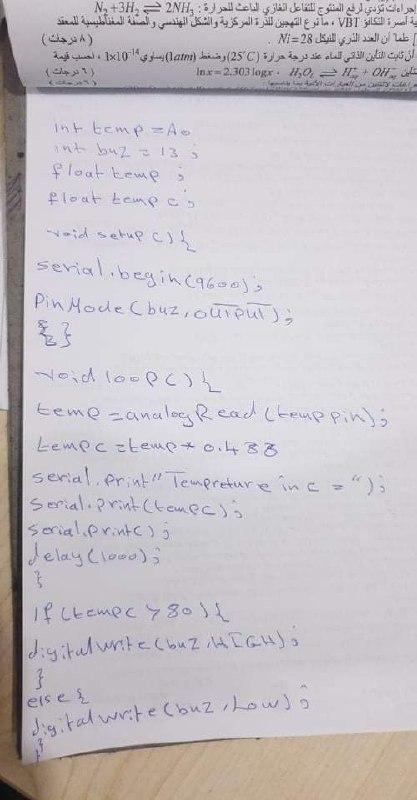 إجراءات تؤدي لرفع المنتوج للتفاعل الغازي الباعث للحرارة : N₂ +3H₂ ⇌ 2NH₃
ية أصرة التكافؤ VBT ، ما نوع التهجين للذرة المركزية والشكل الهندسي والصفة المغناطيسية للمعقد
علماً أن العدد الذري للنيكل Ni=28 . ( ٨ درجات )
أن ثابت التأين الذاتي للماء عند درجة حرارة (25°C) وضغط (1atm) يساوي 1x10⁻¹⁴ ، احسب قيمة
lnx = 2.303logx ( ٦ درجات )
int temp = A0
int buz = 13 ;
float temp ;
float temp c ;
void setup c) {
serial.begin(9600);
PinMode(buz, OUTPUT);
}
void loop() {
temp = analogRead (temp pin);
tempc = temp * 0.488
serial.print "Tempreture in c = ");
serial.print(tempc);
serial.print();
delay(1000);
}
If (tempc > 80) {
digitalwrite (buz, HIGH);
}
else {
digital write (buz, Low);
}